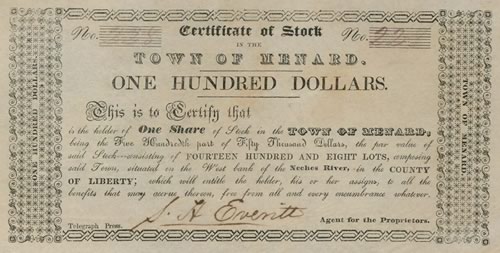 No.
Certificate of Stock
No. 22
IN THE
TOWN OF MENARD.
ONE HUNDRED DOLLARS.
This is to Certify that
is the holder of One Share of Stock in the TOWN OF MENARD,
being the Five Hundredth part of Fifty Thousand Dollars, the par value of
said Stock—consisting of FOURTEEN HUNDRED AND EIGHT LOTS, composing
said Town, situated in the West bank of the Neches River, in the COUNTY
OF LIBERTY; which will entitle the holder, his or her assigns, to all the
benefits that may accrue thereon, free from all and every encumbrance whatever.
S. H Everitt
Agent for the Proprietors.
Telegraph Press.
ONE HUNDRED DOLLARS.
TOWN OF MENARD.